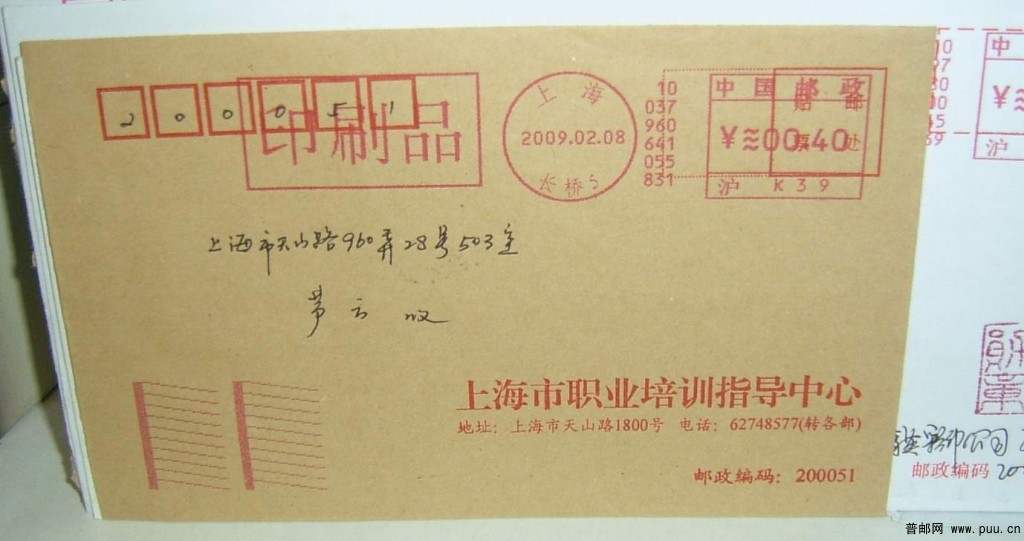 200051
印刷品
上海
2009.02.08
长桥5
10
037
960
641
055
831
中国邮政
¥≈00.40
沪 K39
贴邮
票处
上海市天山路960弄28号503室
上海市职业培训指导中心
地址：上海市天山路1800号 电话：62748577(转各部)
邮政编码：200051
中
¥≈
沪
邮政编码 20
普邮网 www.puu.cn